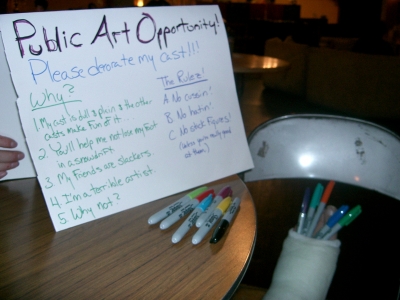 Public Art Opportunity!
Please decorate my cast!!!
Why?
1. My cast is dull & plain & the other
casts make fun of it...
2. You'll help me not lose my foot
in a snowdrift.
3. My friends are slackers.
4. I'm a terrible artist.
5. Why not?
The Rules!
A No cussin!
B. No hatin!
C. No stick figures!
(unless you're really good
at them)